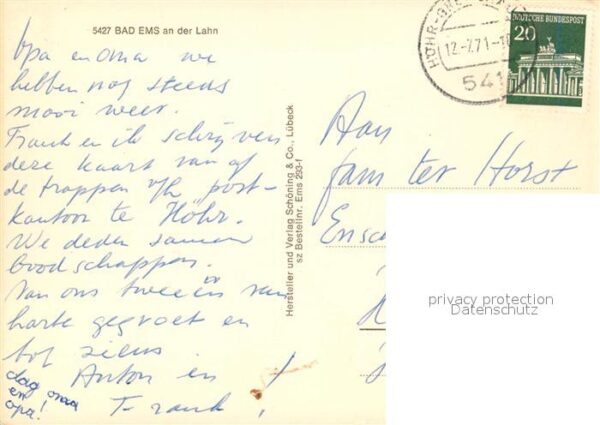 5427 BAD EMS an der Lahn
Opa en oma we
hebben nog steeds
mooi weer.
Franck en ik schrijven
deze kaart van af
de trappen v/h post-
kantoor te Höhr.
We deden samen
boodschappen.
Van ons tweeën van
harte gegroet en
tot ziens.
Anton en
Franck
dag oma
en
opa!
Hersteller und Verlag Schöning & Co., Lübeck
sz Bestellnr. Ems 293-1
HÖHR-
12.-7.71.-
541
DEUTSCHE BUNDESPOST
20
Aan
fam ter Horst
Ensch
privacy protection
Datenschutz